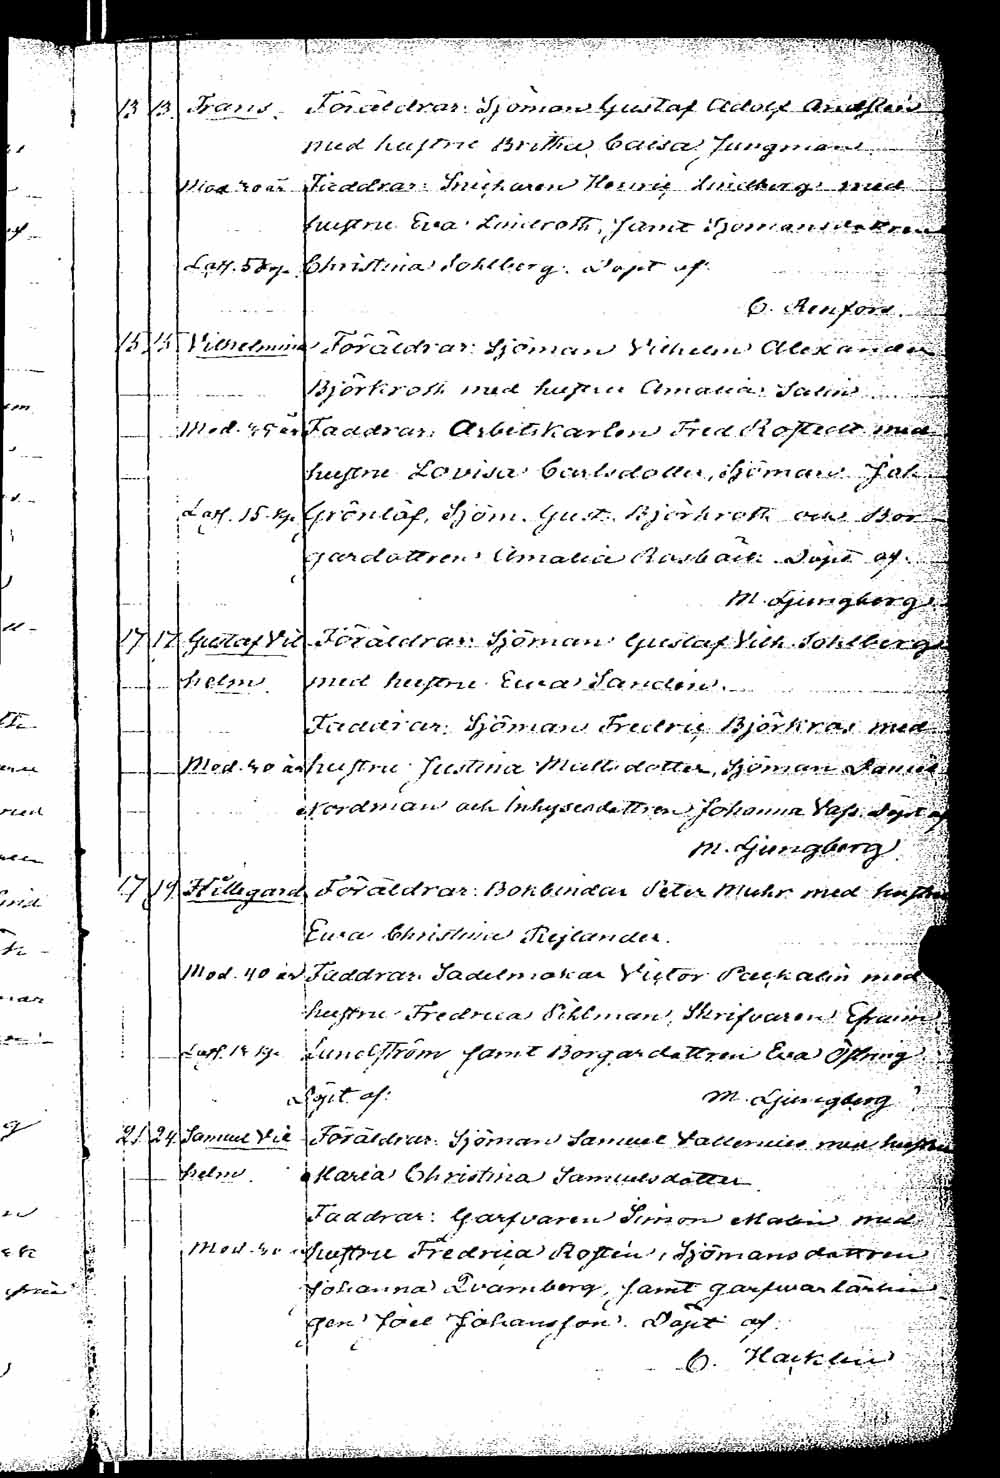 13 13. Frans. Föräldrar: Sjöman Gustaf Adolf
med hustru Britha Caisa Jungman
Mod. 30 år Faddrar: Snickaren Henric Lindberg med
hustru Eva Lindroth, samt Sjömansdottren
Lass. 5 kp. Christina Sohlberg. Döpt af:
C. Renfors.
15 15 Vilhelmina Föräldrar: Sjöman Vilhelm Alexander
Björkroth med hustru Amalia Salin
Mod. 25 år Faddrar: Arbetskarlen Fred Rostedt med
hustru Lovisa Carlsdotter, Sjöman Joh.
Lass. 15 kp. Grönlöf, Sjöm. Gust. Björkroth och Bor-
gardottren Amalia Rosbäck. Döpt af
M. Ljungberg
17 17 Gustaf Vil Föräldrar: Sjöman Gustaf Vilh. Sohlberg
helm. med hustru Ewa Sandin.
Faddrar: Sjöman Fredric Björkros med
Mod. 30 år hustru Justina Mattsdotter, Sjöman Daniel
Nordman och Inhysesdottren Johanna Vass. Döpt af
M. Ljungberg
17 19. Hillegard Föräldrar: Bokbindar Peter Muhr med hustru
Ewa Christina Rejlander.
Mod. 40 år Faddrar: Sadelmakar Victor Packalin med
hustru Fredrica Pihlman, Skrifvaren Efraim
Lass. kp. Lundström samt Borgardottren Eva Östring
Döpt af: M. Ljungberg
21 24 Samuel Vil Föräldrar: Sjöman Samuel Vallenius med hustru
helm. Maria Christina Samuelsdotter
Faddrar: Garfvaren Simon Malin med
Mod. 30 hustru Fredrica Rostén, Sjömansdottren
Johanna Qvarnberg, samt garfvarlärlin
gen Joel Johansson. Döpt af:
C. Hacklin